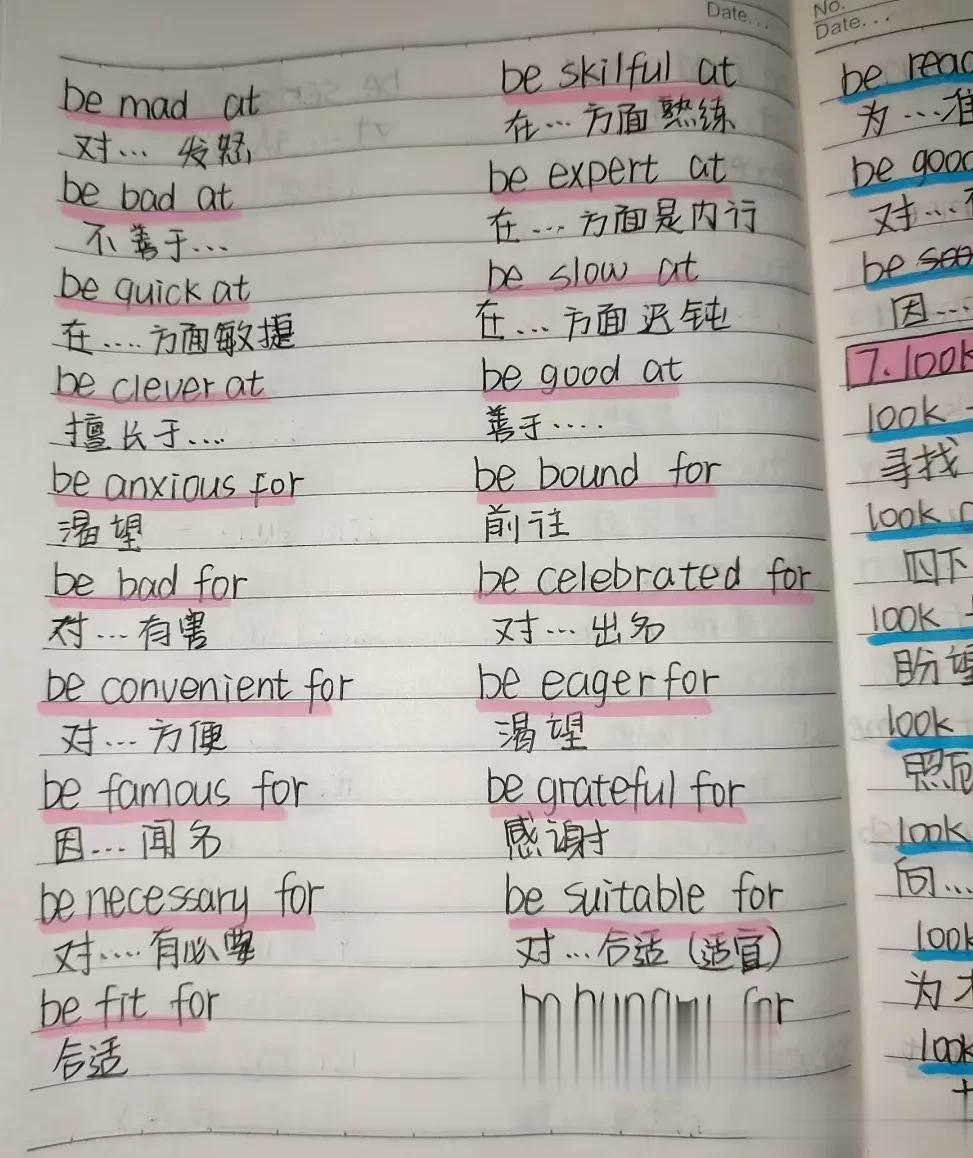 Date...
be mad at
对… 发怒
be bad at
不善于…
be quick at
在….方面敏捷
be clever at
擅长于….
be anxious for
渴望
be bad for
对…有害
be convenient for
对…方便
be famous for
因…闻名
be necessary for
对….有必要
be fit for
合适
be skilful at
在…方面熟练
be expert at
在…方面是内行
be slow at
在…方面迟钝
be good at
善于….
be bound for
前往
be celebrated for
对…出名
be eager for
渴望
be grateful for
感谢
be suitable for
对…合适(适宜)
for
No.
Date...
be
为…
be good
对…
be
因…
7.look
look
寻找
look
四下
look
盼望
look
照
look
向…
look
为
look